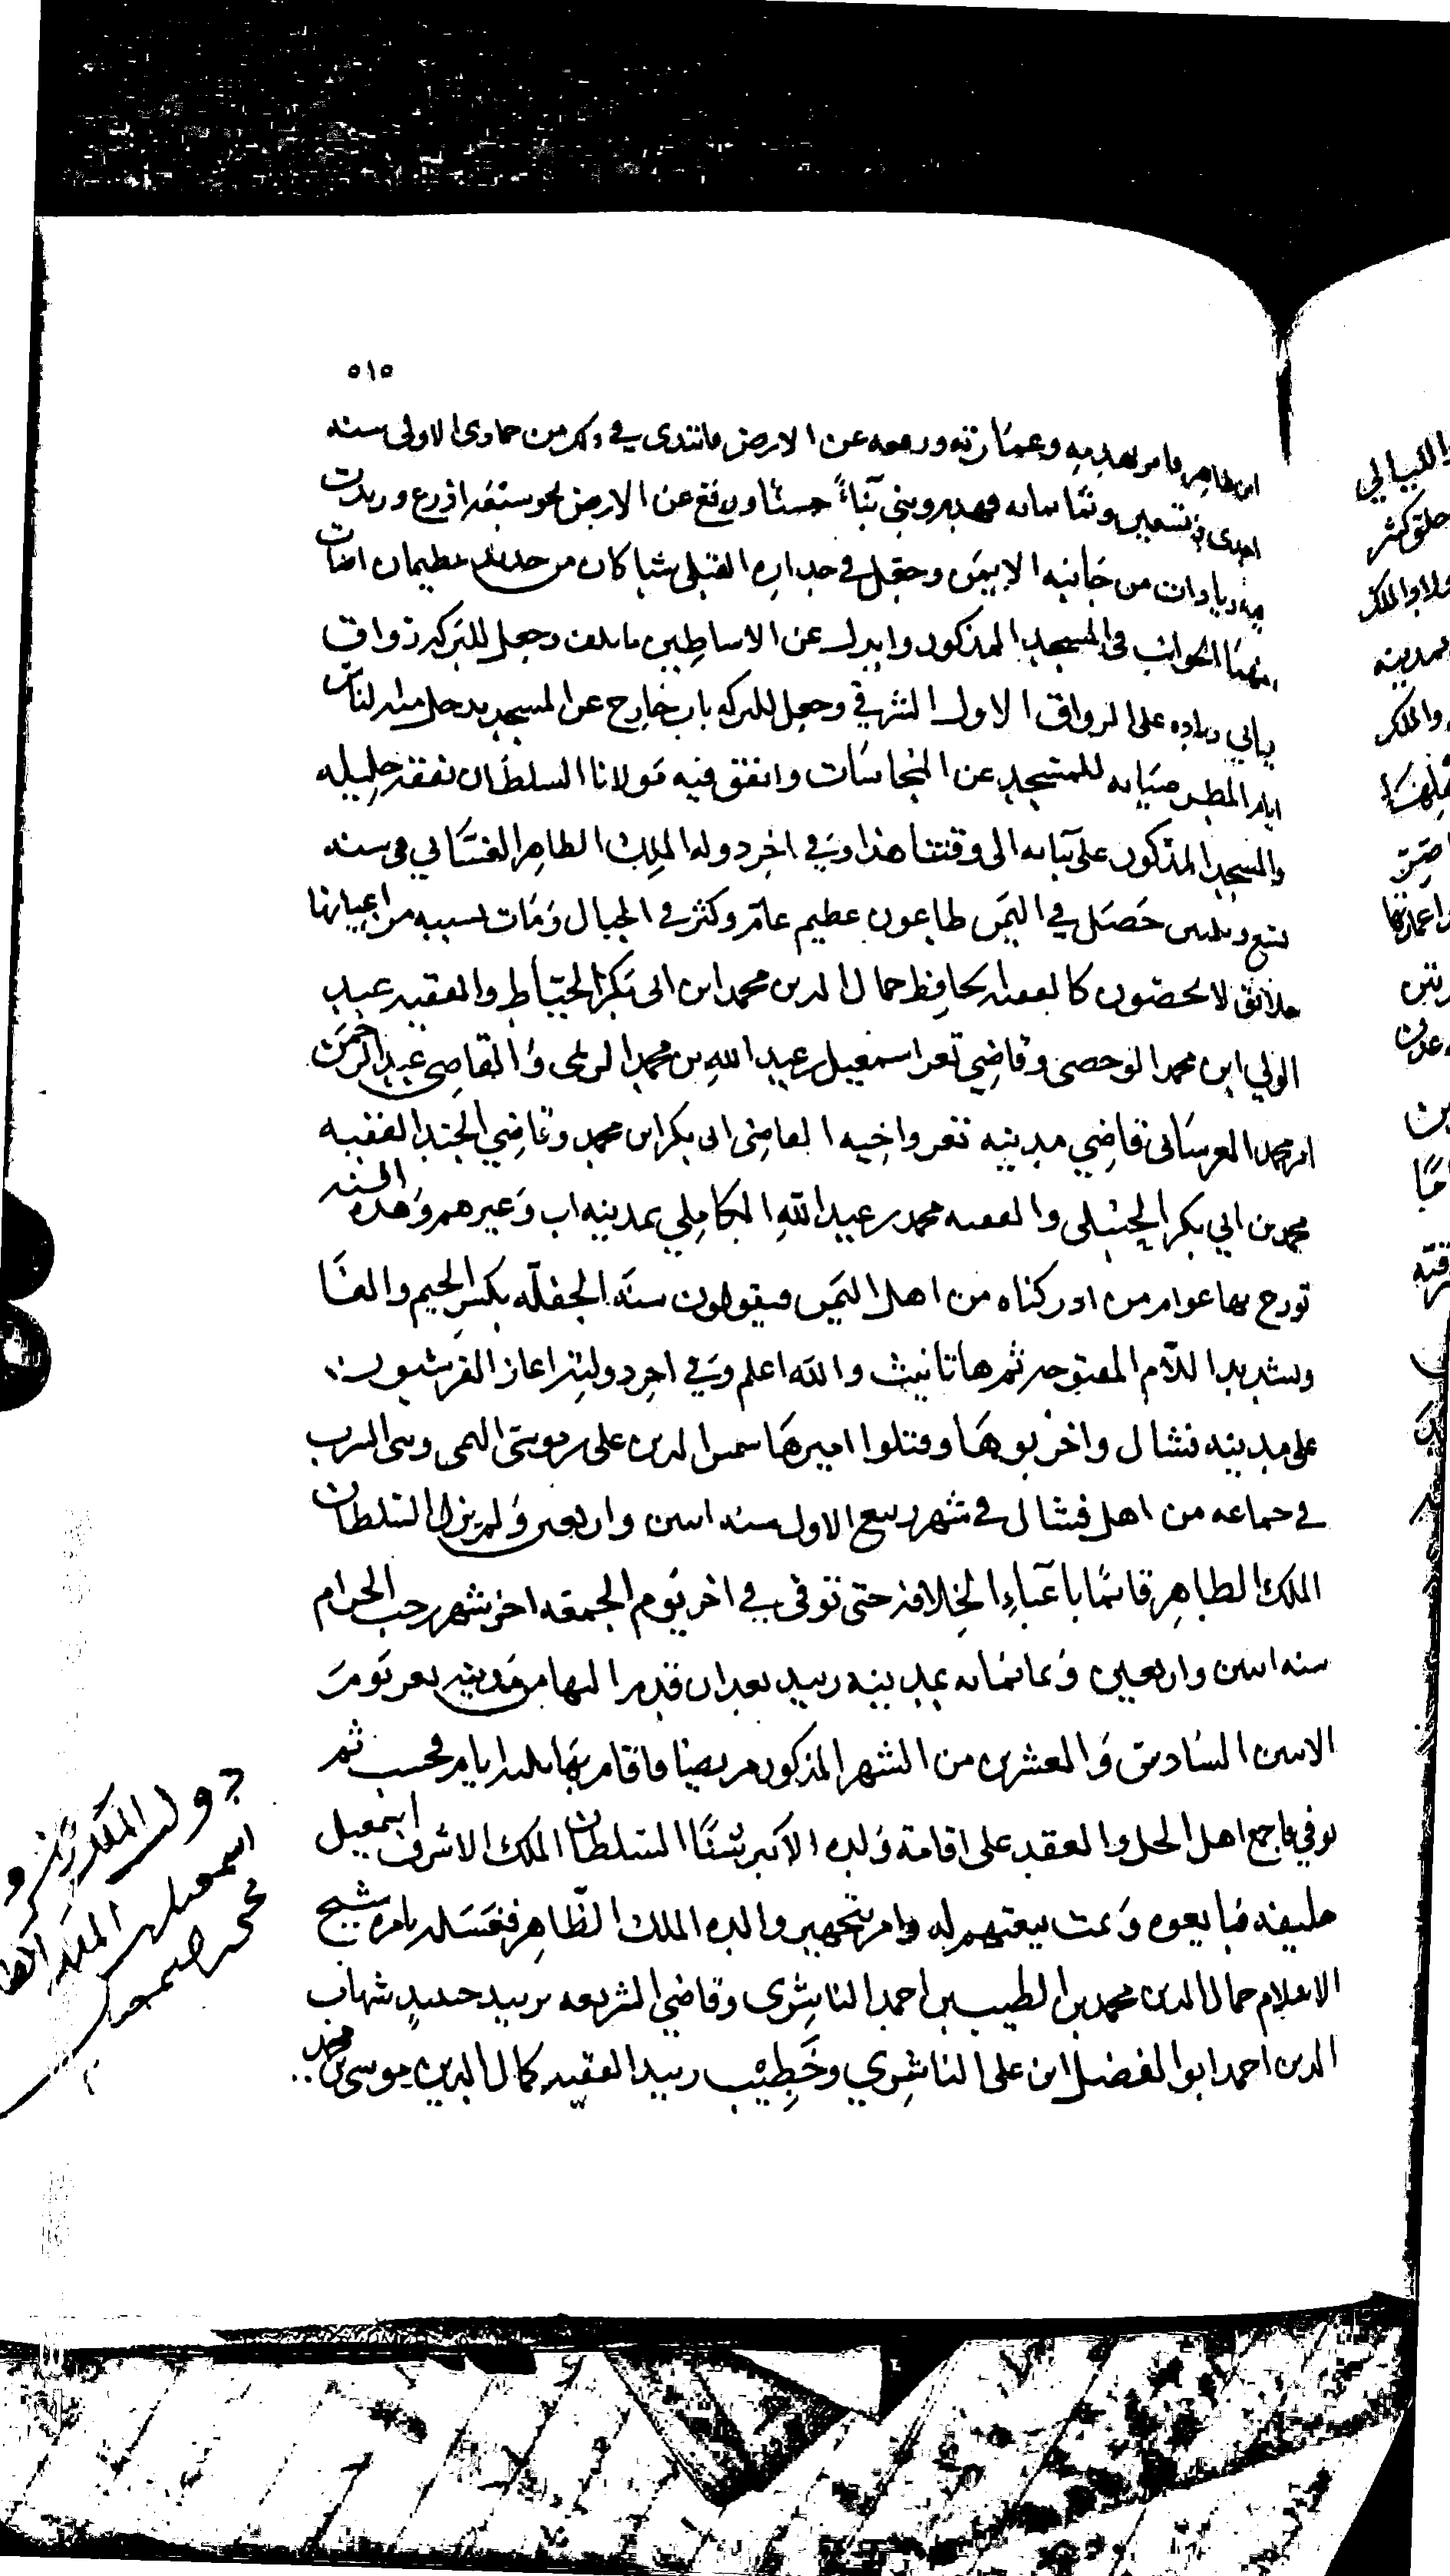 ٥١٥
ابن طاهر فامر بهدمه وعمارته ورفعه عن الارض فابتدى في ذلك من جمادى الاولى سنه
احدى وتسعين وثمانمايه فهدم وبني بناءً حسنًا ورفع عن الارض نحو سبعه اذرع وزيدت
فيه زيادات من جانبه الايمن وجعل في جداره القبلي شباكان من حديد عظيمان
في المسجد المذكور وابدل عن الاساطين وجعل للبركه رواق
يماني زياده على الرواق الاول الشرقي وجعل للبركه باب خارج عن المسجد يدخل منه الناس
ايام المطر صيانه للمسجد عن النجاسات وانفق فيه مولانا السلطان نفقه جليله
والمسجد المذكور على بنايه الى وقتنا هذا وفي اخر دوله الملك الظاهر الغساني في سنه
تسع وثلثين حصل في اليمن طاعون عظيم عام وكثر في الجبال ومات بسببه من اعيانها
خلائق لا يحصون كالفقيه الحافظ جمال الدين محمد ابن ابي بكر الخياط والفقيه عبد
الولي ابن محمد الوحصي وقاضي تعز اسمعيل بن عبد الله بن محمد الريمي والقاضي عبد الرحمن
ابن محمد العرشاني قاضي مدينه تعز واخيه القاضي ابي بكر ابن محمد وقاضي الجند الفقيه
محمد بن ابي بكر الحنبلي والفقيه محمد بن عبد الله الكاملي بمدينه اب وغيرهم وهذه السنه
تورخ بها عوام من ادركناه من اهل اليمن فيقولون سنه الجفله بكسر الجيم والفا
وتشديد اللام المفتوحه ثم ها تانيث والله اعلم وفي اخر دولته اغار القرشيون
على مدينه فشال واخربوها وقتلوا اميرها شمس الدين علي بن موسى
في جماعه من اهل فشال في شهر ربيع الاول سنه اثنين واربعين ولم يزل السلطان
الملك الظاهر قائمًا باعباء الخلافه حتى توفي في اخر يوم الجمعه اخر شهر رجب الحرام
سنه اثنين واربعين وثمانمايه بمدينه زبيد بعد ان قدم اليها من مدينه تعز يوم
الاثنين السادس والعشرين من الشهر المذكور مريضا فاقام بها ثلثه ايام فحسب ثم
توفي فاجمع اهل الحل والعقد على اقامة ولده الاكبر سنًا السلطان الملك الاشرف اسمعيل
خليفه فبايعوه وتمت بيعتهم له وامر بتجهيز والده الملك الظاهر فغسله بامره شيخ
الاسلام جمال الدين محمد بن الطيب بن احمد الناشري وقاضي الشريعه بزبيد حينيذٍ شهاب
الدين احمد ابو الفضل ابن علي الناشري وخطيب زبيد الفقيه كمال الدين موسى بن محمد